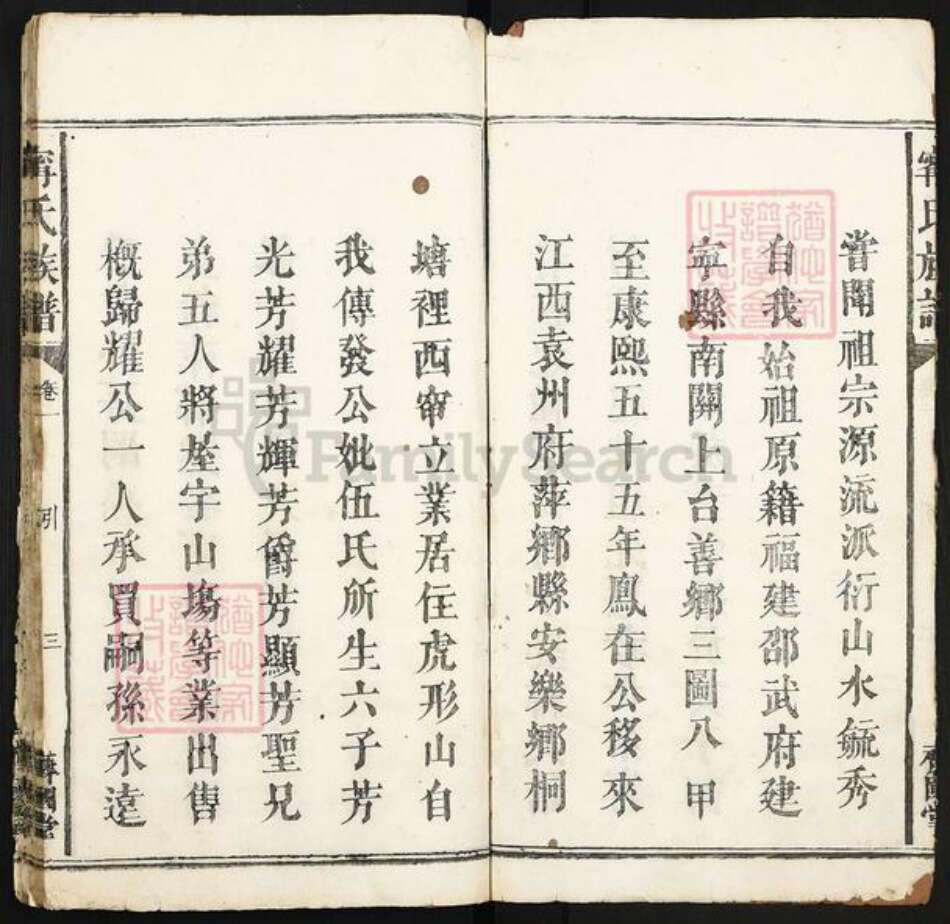 嘗聞祖宗源流派衍山水毓秀
自我始祖原籍福建邵武府建
寧縣南關上台善鄉三圖八甲
至康熙五十五年鳳在公移來
江西袁州府萍鄉縣安樂鄉桐
塘裡西窜立業居住虎形山自
我傳發公妣伍氏所生六子芳
光芳耀芳輝芳爵芳顯芳聖兄
弟五人將基宇山塲等業出售
概歸耀公一人承買嗣孫永遠
甯氏族譜 卷一 引 三
FamilySearch